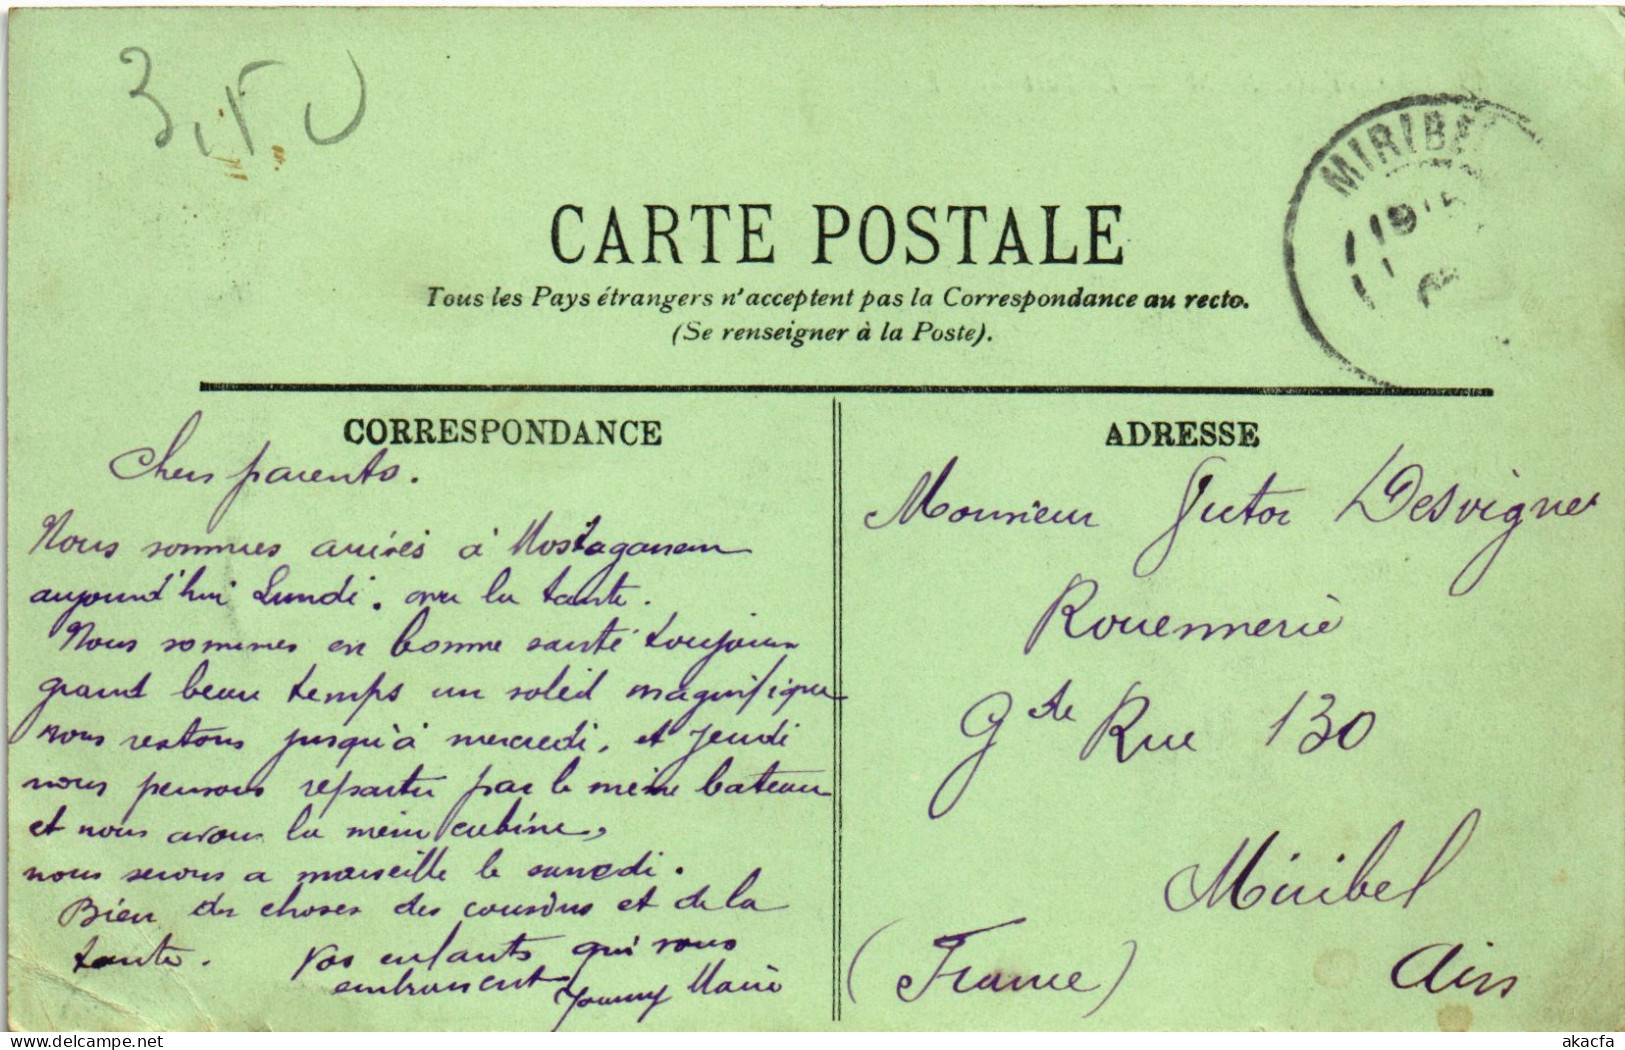 3,50
MIRIBEL
19
CARTE POSTALE
Tous les Pays étrangers n'acceptent pas la Correspondance au recto.
(Se renseigner à la Poste).
CORRESPONDANCE
Chers parents.
Nous sommes arrivés à Mostaganem
aujourd'hui Lundi. la tante.
Nous sommes en bonne santé toujours
grand beau temps un soleil magnifique
nous restons jusqu'à mercredi, et jeudi
nous pensons repartir par le même bateau
et nous avons la meme cabine,
nous serons a marseille le samedi.
Bien des choses des cousins et de la
tante. Vos enfants qui vous
embrassent
Marie
ADRESSE
Monsieur Victor Desvignes
Rouennerie
Gde Rue 130
Miribel
(France) Ain
delcampe.net
akacfa